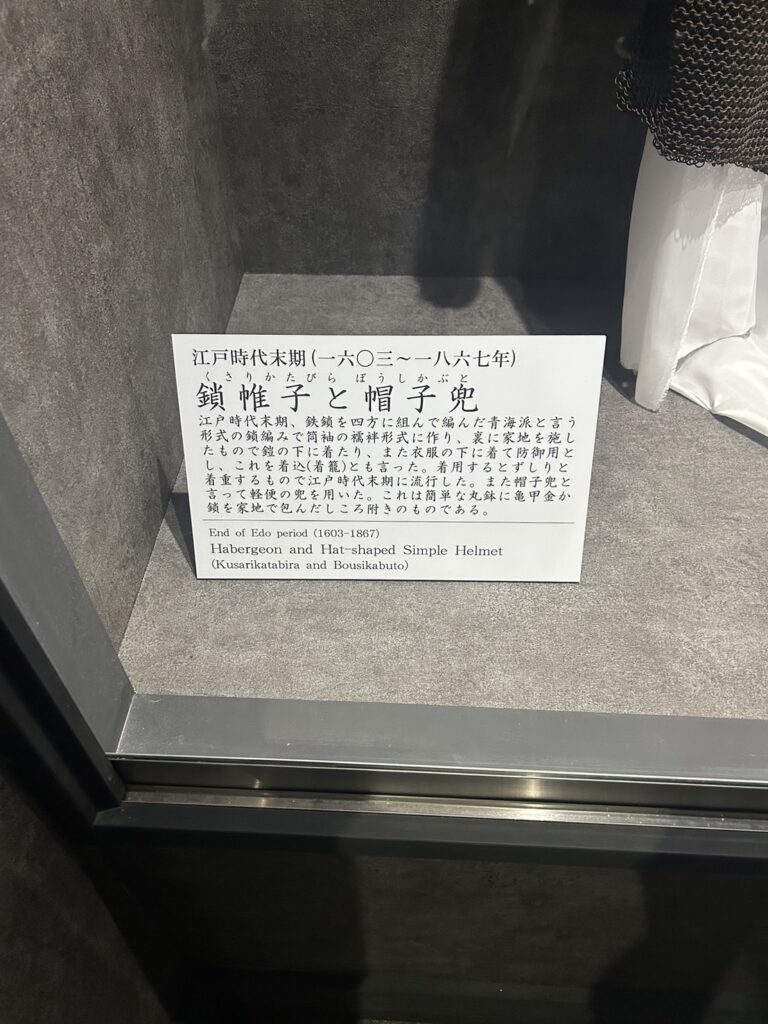 江戸時代末期(一六〇三〜一八六七年)
くさりかたびら ぼうしかぶと
鎖帷子と帽子兜
江戸時代末期、鉄鎖を四方に組んで編んだ青海派と言う
形式の鎖編みで筒袖の襦袢形式に作り、裏に家地を施し
たもので鎧の下に着たり、また衣服の下に着て防御用と
し、これを着込(着籠)とも言った。着用するとずしりと
着重するもので江戸時代末期に流行した。また帽子兜と
言って軽便の兜を用いた。これは簡単な丸鉢に亀甲金か
鎖を家地で包んだしころ附きのものである。
End of Edo period (1603-1867)
Habergeon and Hat-shaped Simple Helmet
(Kusarikatabira and Bousikabuto)